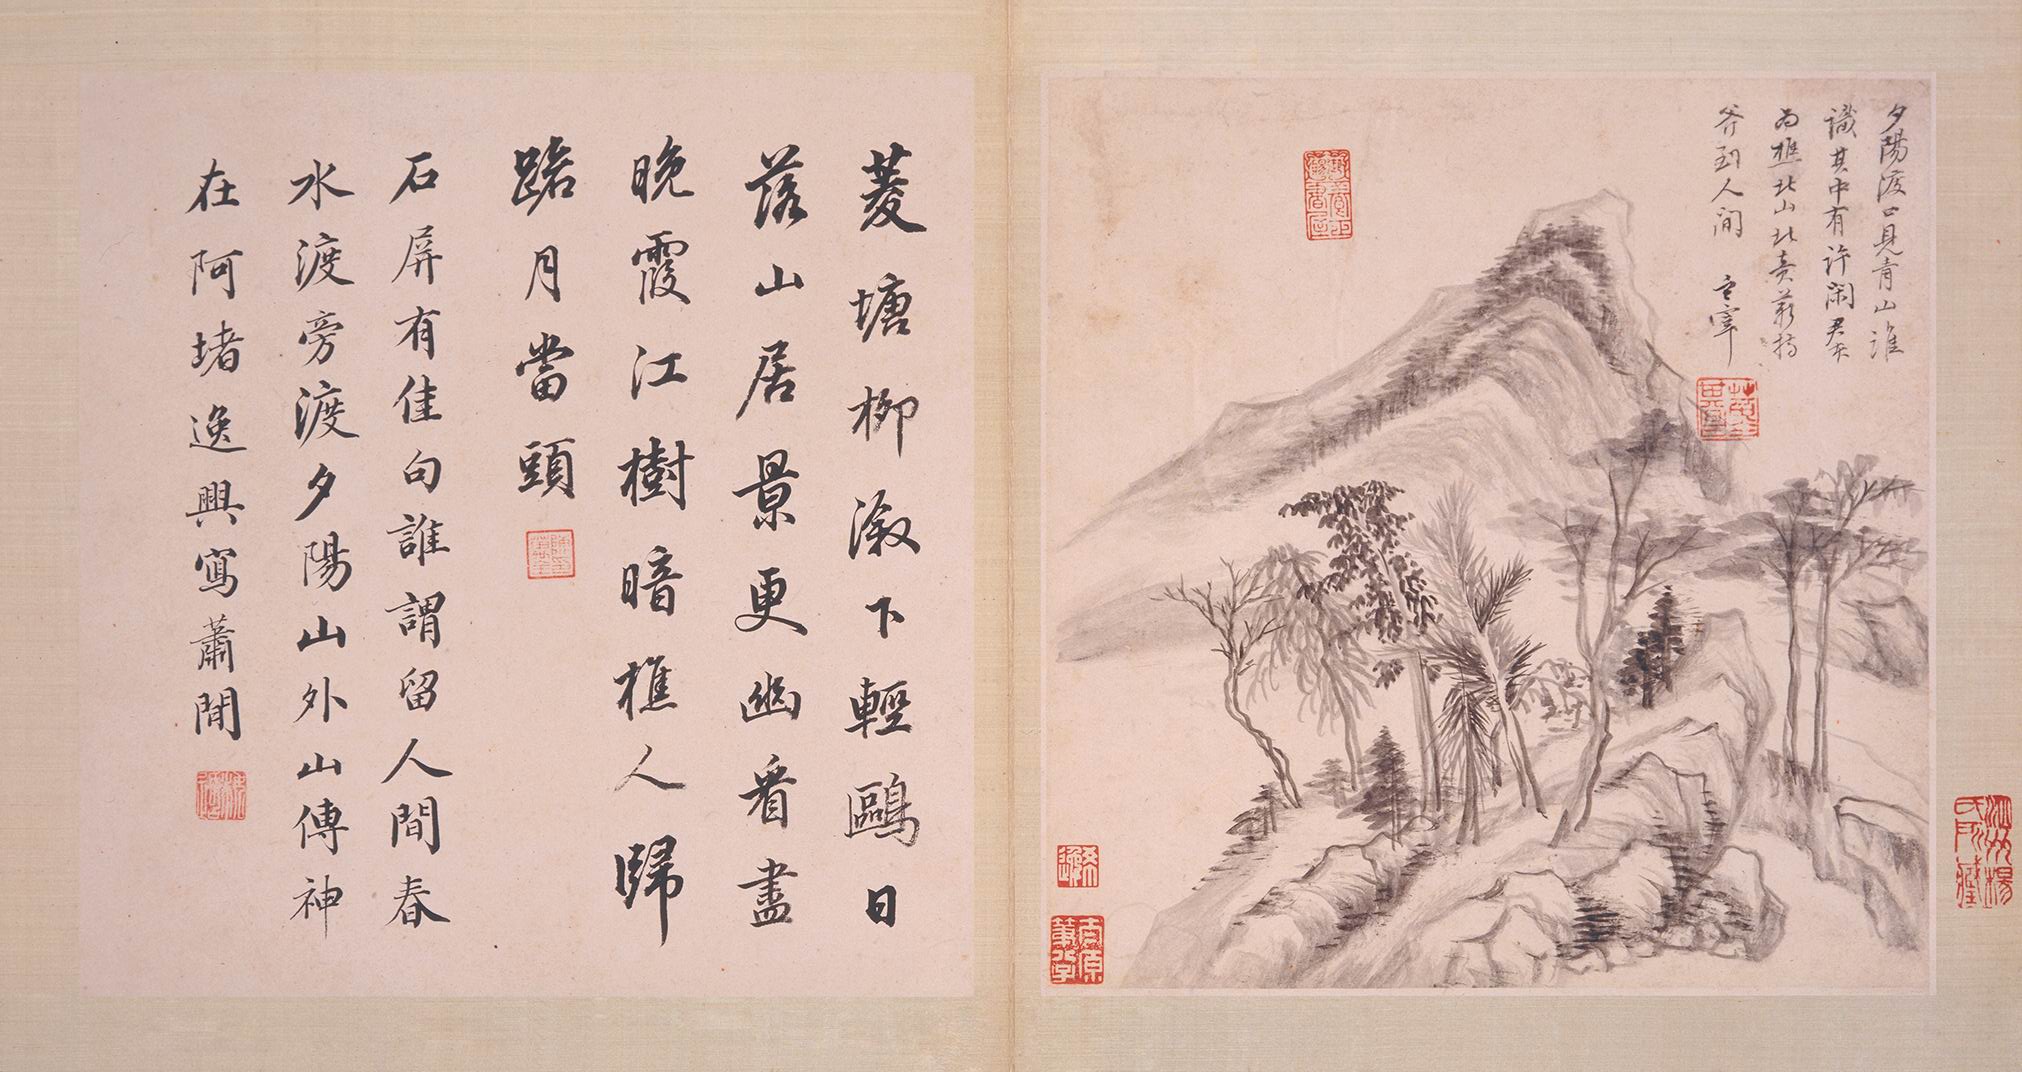 夕陽渡口見青山誰
識其中有許閑君不
為樵北山北責薪持
斧到人間 玄宰
菱塘柳漵下輕鷗日
落山居景更幽看盡
晚霞江樹暗樵人歸
踏月當頭
石屏有佳句誰謂留人間春
水渡旁渡夕陽山外山傳神
在阿堵逸興寫蕭閒